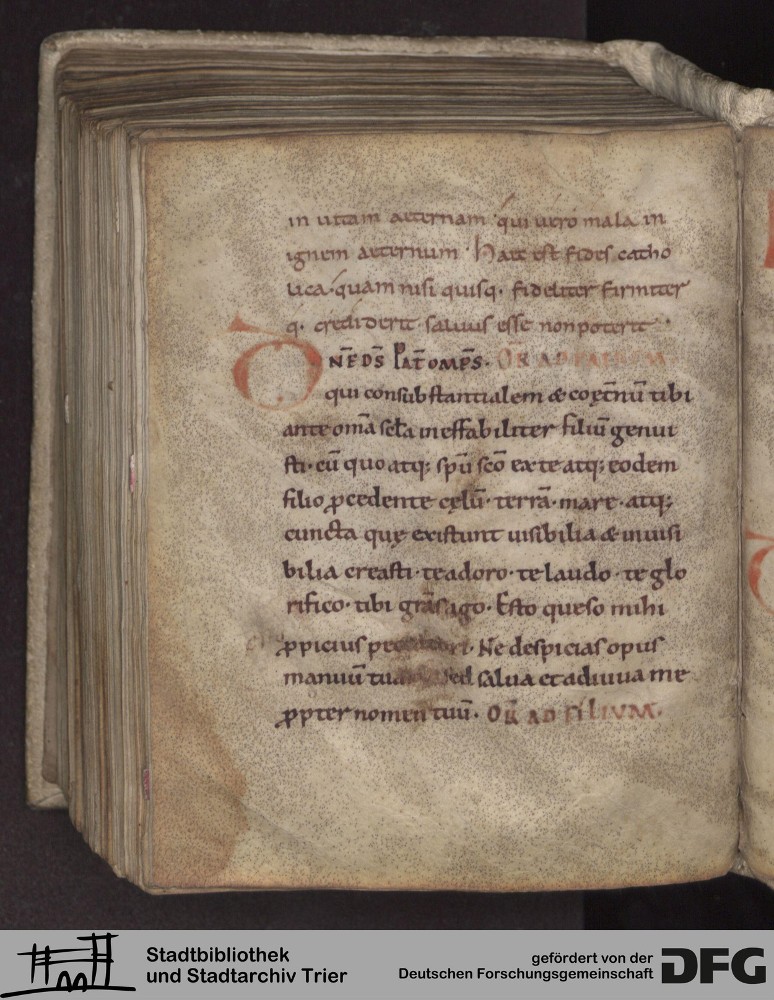 in uitam aeternam · qui uero mala in
ignem aeternum · Haec est fides catho
lica · quam nisi quisq· fideliter firmiter
q· crediderit · saluus esse non poterit ·
DNE DS PAT OMPS · OR AD PATREM
qui consubstantialem & coętnū tibi
ante om̄a scla ineffabiliter filiū genui
sti · cū quo atq; spū scō ex te atq; eodem
filio ꝓcedente cęlū · terrā · mare · atq;
cuncta quę existunt uisibilia & inuisi
bilia creasti · te adoro · te laudo · te glo
rifico · tibi grās ago · Esto queso mihi
ꝓpicius peccatori · Ne despicias opus
manuū tuarū sed salua et adiuua me
ꝓpter nomen tuū · OR AD FILIUM ·
Stadtbibliothek
und Stadtarchiv Trier
gefördert von der
Deutschen Forschungsgemeinschaft
DFG